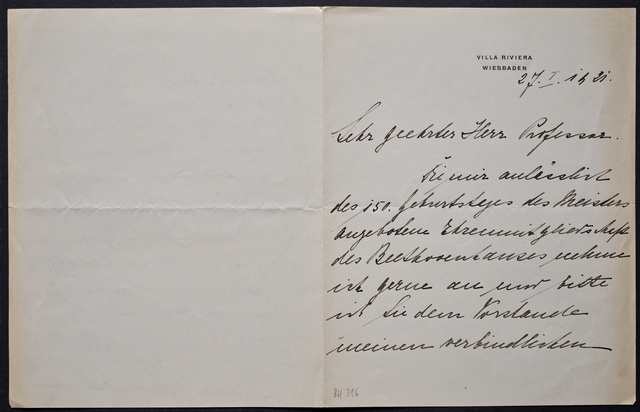 VILLA RIVIERA
WIESBADEN
27. I. 1921.
Sehr geehrter Herr Professor.
Die mir anlässlich
des 150. Geburtstages des Meisters
angebotene Ehrenmitgliedschaft
des Beethovenhauses nehme
ich gerne an und bitte
ich Sie dem Vorstande
meinen verbindlichen
BH 316